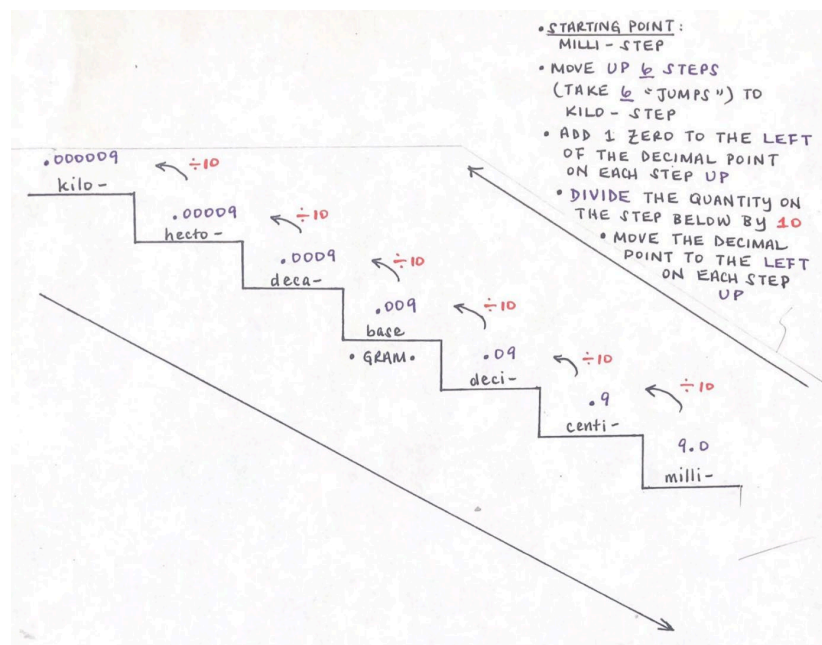 • STARTING POINT:
MILLI - STEP
• MOVE UP 6 STEPS
(TAKE 6 "JUMPS") TO
KILO - STEP
• ADD 1 ZERO TO THE LEFT
OF THE DECIMAL POINT
ON EACH STEP UP
• DIVIDE THE QUANTITY ON
THE STEP BELOW BY 10
• MOVE THE DECIMAL
POINT TO THE LEFT
ON EACH STEP
UP
.000009
÷10
kilo-
.00009
÷10
hecto-
.0009
÷10
deca-
.009
÷10
base
• GRAM •
.09
÷10
deci-
.9
÷10
centi-
9.0
milli-